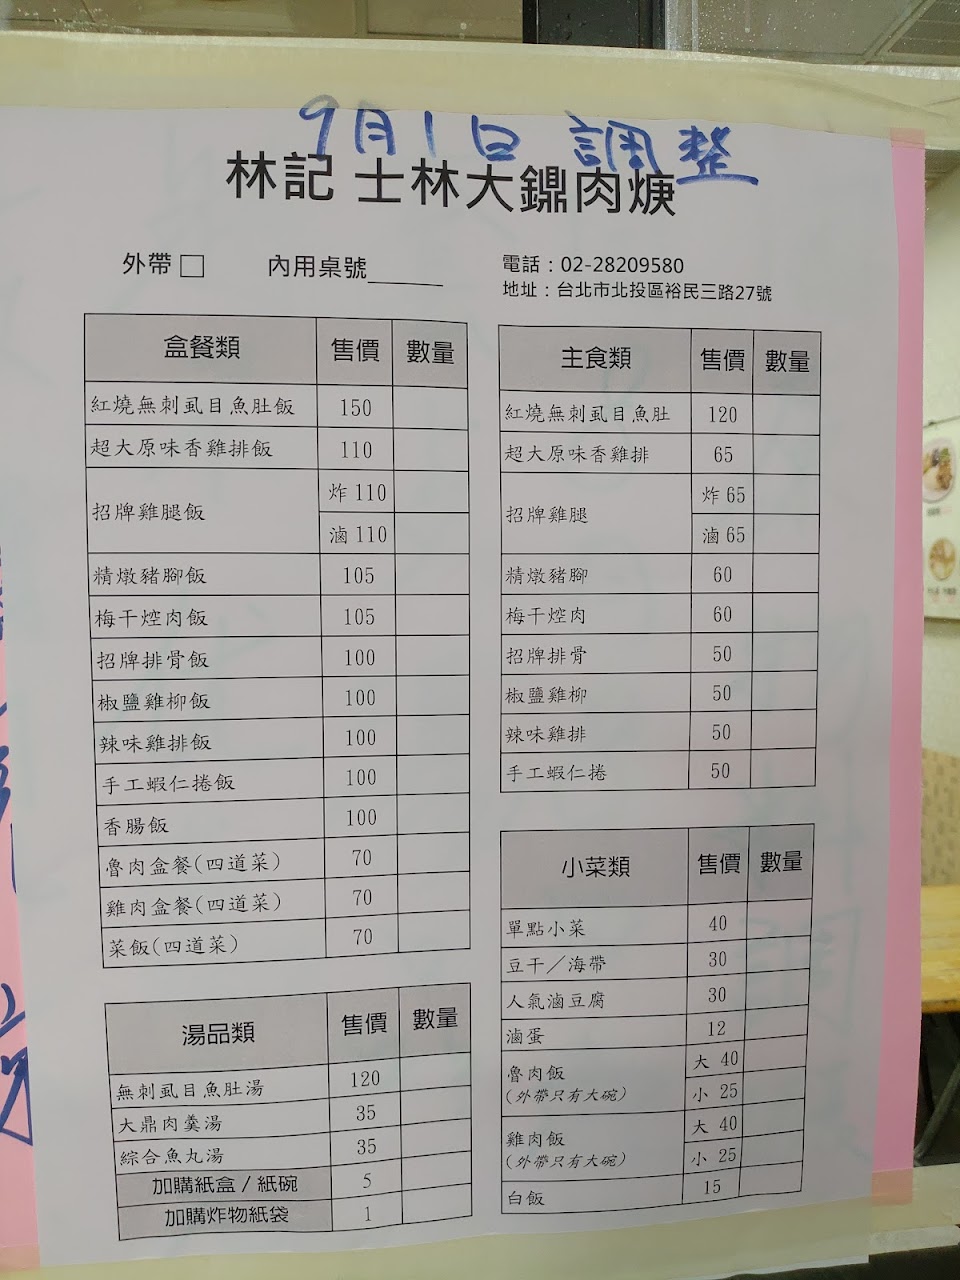 9月1日 調整
林記 士林大鐤肉焿
外帶□ 內用桌號______
電話：02-28209580
地址：台北市北投區裕民三路27號
盒餐類 售價 數量
紅燒無刺虱目魚肚飯 150
超大原味香雞排飯 110
招牌雞腿飯 炸 110
滷 110
精燉豬腳飯 105
梅干焢肉飯 105
招牌排骨飯 100
椒鹽雞柳飯 100
辣味雞排飯 100
手工蝦仁捲飯 100
香腸飯 100
魯肉盒餐(四道菜) 70
雞肉盒餐(四道菜) 70
菜飯(四道菜) 70
湯品類 售價 數量
無刺虱目魚肚湯 120
大鼎肉羹湯 35
綜合魚丸湯 35
加購紙盒/紙碗 5
加購炸物紙袋 1
主食類 售價 數量
紅燒無刺虱目魚肚 120
超大原味香雞排 65
招牌雞腿 炸 65
滷 65
精燉豬腳 60
梅干焢肉 60
招牌排骨 50
椒鹽雞柳 50
辣味雞排 50
手工蝦仁捲 50
小菜類 售價 數量
單點小菜 40
豆干／海帶 30
人氣滷豆腐 30
滷蛋 12
魯肉飯 大 40
(外帶只有大碗) 小 25
雞肉飯 大 40
(外帶只有大碗) 小 25
白飯 15